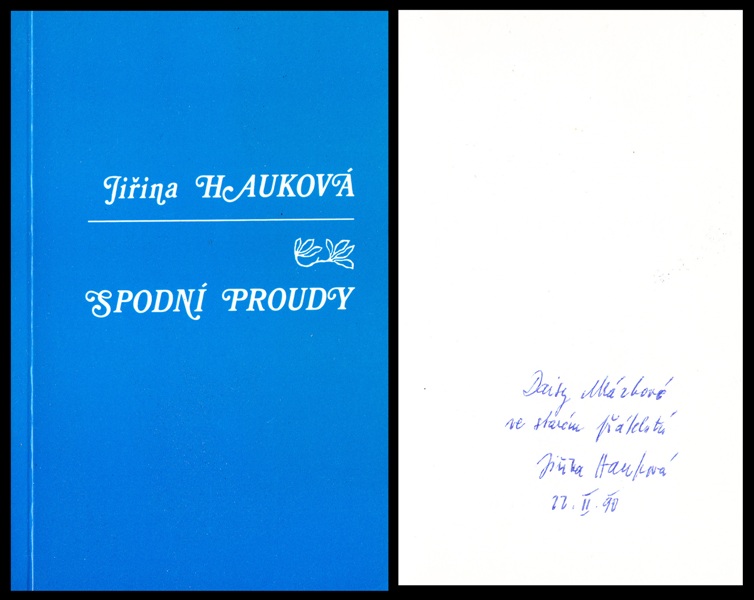 Jiřina HAUKOVÁ
SPODNÍ PROUDY
Daisy Mrázkové
ve starém přátelství
Jiřina Hauková
22. II. 90